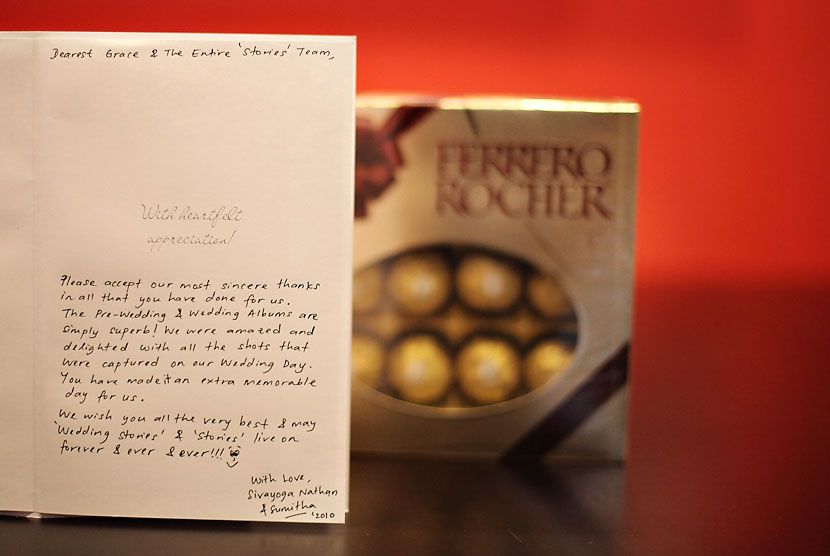 Dearest Grace & The Entire 'Stories' Team,
With heartfelt
appreciation!
Please accept our most sincere thanks
in all that you have done for us.
The Pre-Wedding & Wedding Albums are
simply superb! We were amazed and
delighted with all the shots that
were captured on our Wedding Day.
You have made it an extra memorable
day for us.
We wish you all the very best & may
'Wedding Stories' & 'Stories' live on
forever & ever & ever!!!
With Love,
Sivayoga Nathan
& Sumitha
'2010
FERRERO
ROCHER